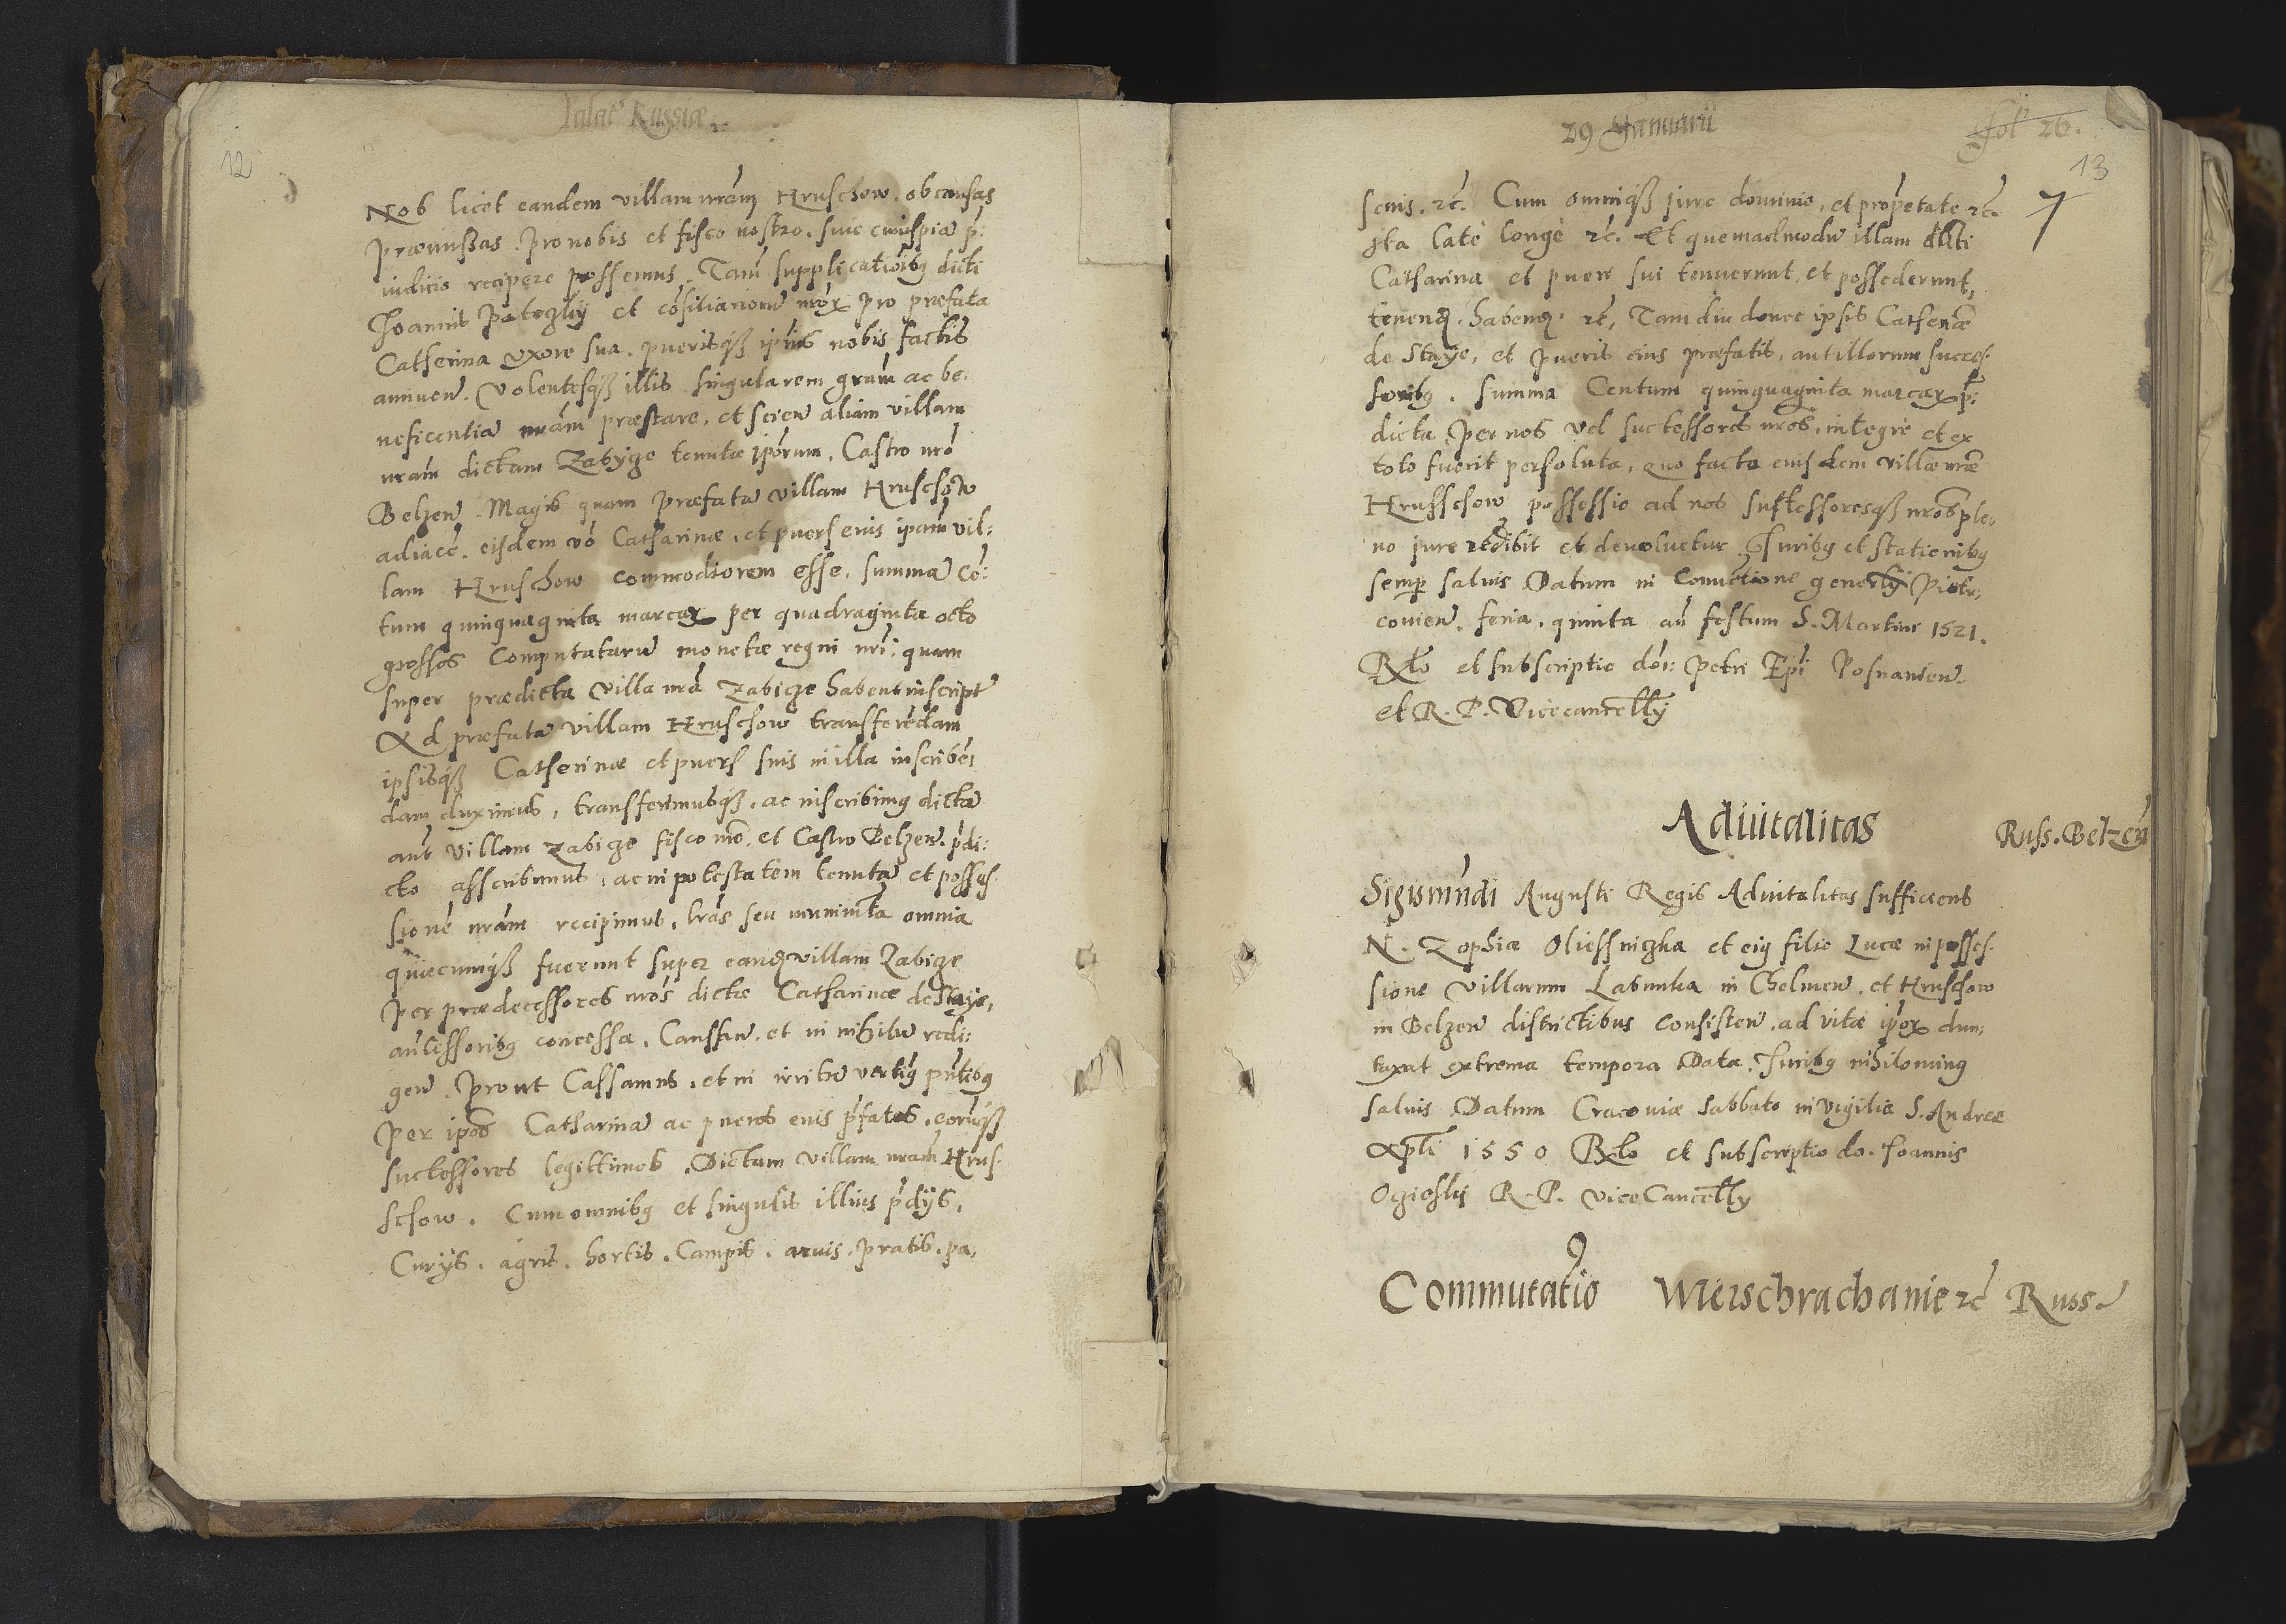 Palat Russiæ
12
Nos licet eandem villam nram Hruschow. ob causas
præmissas. pro nobis et fisco nostro. sine cuiuspiā p̄:
iudicio recipere possemus. Tam̄ supplicatioībꝫ dicti
Joannis Pateczky et cōsiliariorū nror̄ pro præfata
Catherina uxore sua. puerisqß ipius nobis factis
annuen̄. Volentesqß illis singularem grām ac be:
neficentiā nrām præstare, et scien̄ aliam villam
nrām dictam Zabyge tenutæ ipōrum, Castro nrō
Belzen̄. Magis quam præfatā villam Hruschow
adiacē. eisdem vō Catharinæ, et puers eius ipam̄ vil:
lam Hruschow commodiorem esse, summā Cē:
tum quinquaginta marcar̄ per quadraginta octo
grossos computatarū monetæ regni nrī: quam
super prædicta villa nrā Zabicze habent inscriptā
Ad præfatā villam Hruschow transferēdam
ipsisqß Catherinæ et puers suis in illa inscribē:
dam duximus, transferimusqß. ac inscribimꝫ dictā
aut̄ villam Zabicze fisco nrō. et Castro Belzen̄. pr̄di:
cto asscribimus, ac in potestatem tenutā et posses:
sionē nrām recipimus, lrās seu munimēta omnia
quæcumqß fuerunt super eandꝫ villam Zabicze
per prædecessores nrōs dictæ Catharinæ de Staye,
ant̄essoribꝫ concessa, Cassan̄. et in nihilū redi:
gen̄. prout Cassamus, et in irritū vertimꝫ pn̄tibꝫ
Per ipōs Catharinā ac pueros eius pr̄fatos, eorūqß
successores legittimos. Dictam villam nrām Hrus:
schow. Cum omnibꝫ et singulis illius pr̄dijs,
Curijs, agris, hortis, Campis, aruis, pratis, pa:
29 Januarii
fol 26.
13
7
scuis. rc̄. Cum omniqß iure dominio, et prop̄etate rc̄.
Ita late longe rc̄. Et quemadmodū illam dicti
Catharina et pueri sui tenuerunt, et possederunt,
tenendꝫ, habendꝫ. rc̄, Tam diu donec ipsis Catherinæ
de Staye, et pueris eius præfatis, aut illorum succes:
soribꝫ. summa Centum quinquaginta marcar̄ p̄:
dicta, per nos vel successores nrōs, integrè et ex
toto fuerit persoluta, quo facto eiusdem villæ nræ
Hrusschow possessio ad nos successoresqß nrōs ple:
no iure redibit et devoluetur. Juribꝫ et stationibꝫ
semp̄ saluis Datum in Conuētione gener̄li Piotr:
couien̄. feria. quinta an̄ festum S. Martini 1521.
Rlo et subscriptio dōi: Petri Epī Posnanien̄.
et R. P. Vicecancell̄ij
Aduitalitas
Russ. Belzen̄
Sigismūndi Augusti Regis Aduitalitas sufficiens
N. Zophiæ Oliessniczka et eiꝫ filio Lucæ in posses:
sione villarum Labunka in Chelmen̄. et Hruschow
in Belzen̄ districtibus consisten̄. ad vitæ ipōr̄ dun:
taxat extrema tempora Data. Juribꝫ nihilominꝫ
saluis Datum Cracouiæ Sabbato in vigilia S. Andreæ
Apl̄i 1550 Rlo et subscriptio do. Joannis
Oczieski R. P. viceCancell̄y
9
Commutatio Wierschrachanie rc̄ Russ.